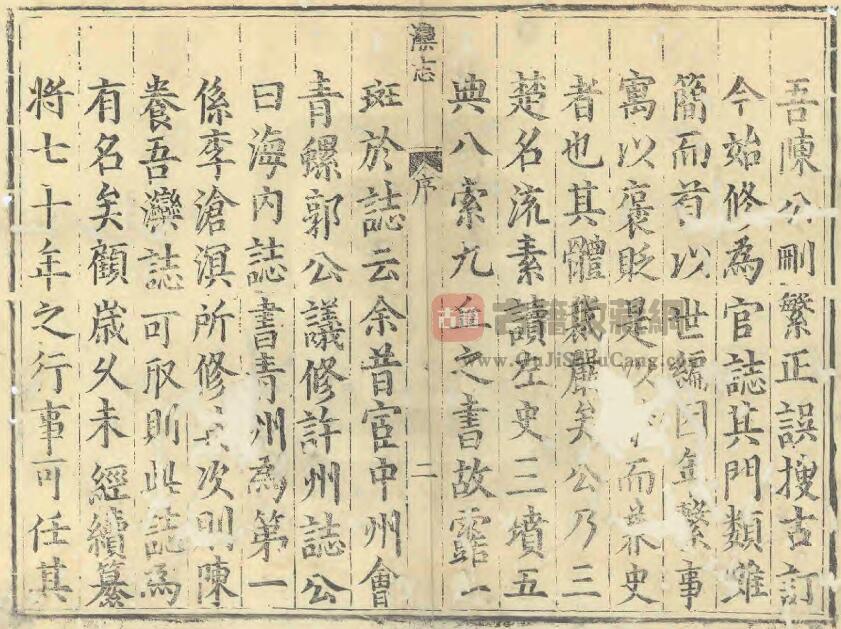 吾陳公刪繁正誤搜古訂
今始修為官誌其門類雖
簡而首以世編因年繫事
寓以褒貶是以而兼史
者也其體裁嚴矣公乃三
楚名流素讀左史三墳五
典八索九丘之書故露一
灤志
序
二
斑於誌云余昔宦中州會
青螺郭公議修許州誌公
曰海內誌書青州為第一
係李滄溟所修其次則陳
養吾灤誌可取則此誌為
有名矣顧歲久未經續纂
將七十年之行事可任其
古籍收藏網
www.GuJiShouCang.com